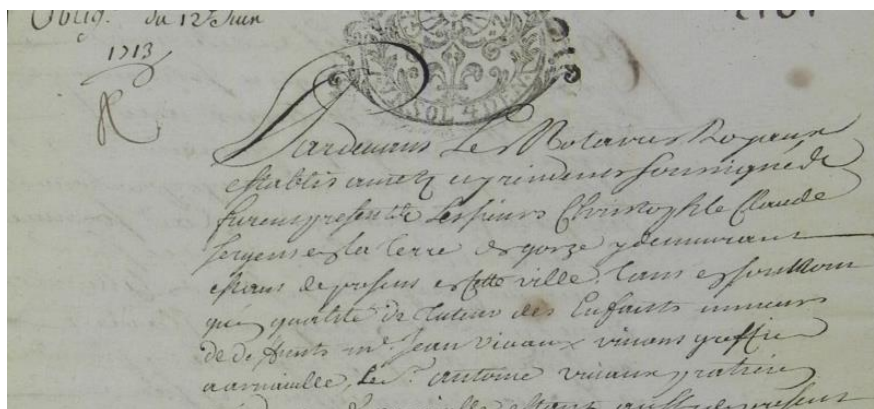 Oblig. du 12e Juin
1713
SOL 4 DEN
Pardevans Les Notaires Royaux
establis a metz y residens soussignés
furens presens Les sieurs Christophle Claude
sergens en la terre de gorze y demeurant
estans de presens en cette ville, tans en son nom
que qualité de tuteur des Enfants mineurs
de defunts me Jean Vivaux vivans greffier
a arnaville, Le Sr. antoine vivaux praticien